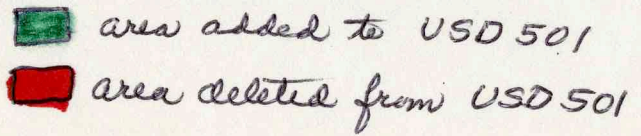 area added to USD 501
area deleted from USD 501